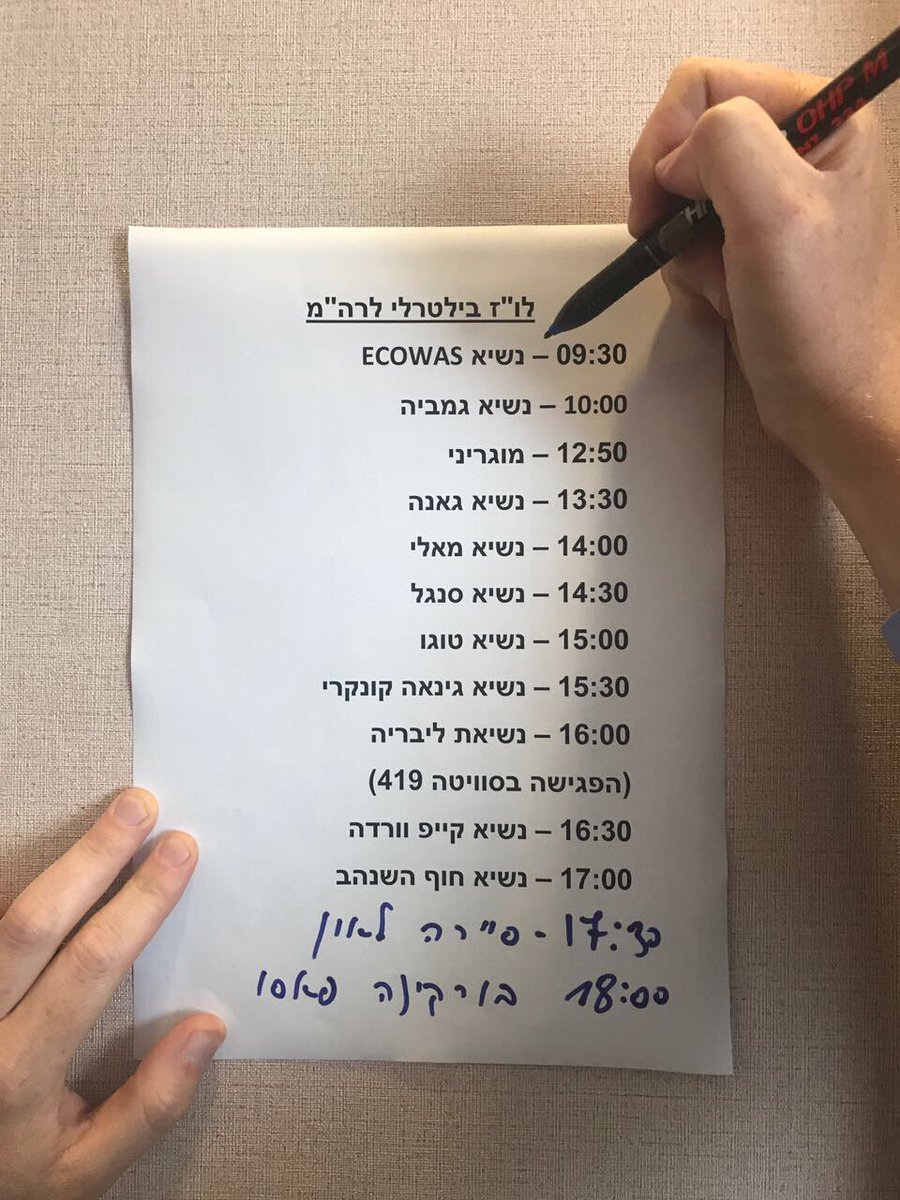 OHP M
לו"ז בילטרלי לרה"מ
09:30 – נשיא ECOWAS
10:00 – נשיא גמביה
12:50 – מוגריני
13:30 – נשיא גאנה
14:00 – נשיא מאלי
14:30 – נשיא סנגל
15:00 – נשיא טוגו
15:30 – נשיא גינאה קונקרי
16:00 – נשיאת ליבריה
(הפגישה בסוויטה 419)
16:30 – נשיא קייפ וורדה
17:00 – נשיא חוף השנהב
17:30 - סיירה לאון
18:00 בורקינה פאסו